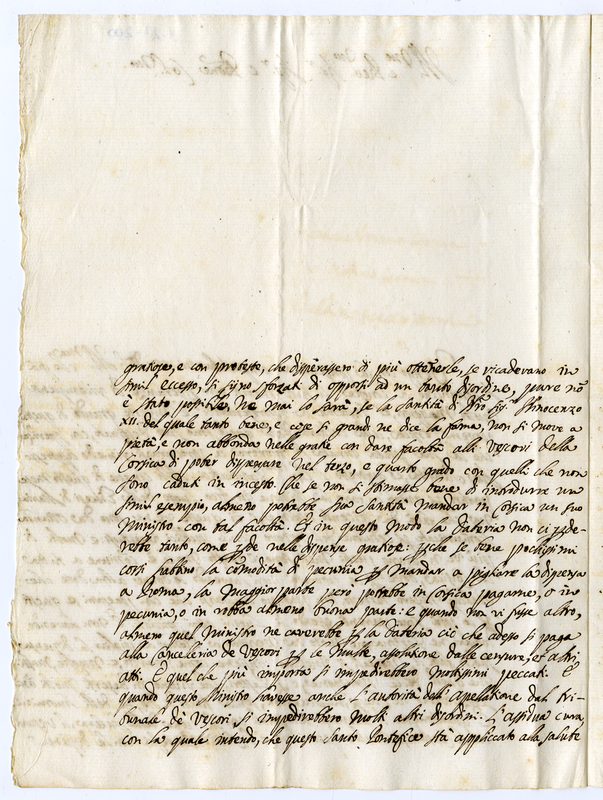 gratiose, e con protesto, che disperassero di più ottenerle, se ricadevano in
simil eccesso, si sijno sforzati di opporsi ad un tanto disordine, pure nō
è stato possibile, ne mai lo sarà, se la Santità di Nro Sigr. Innocenzo
XII. del quale tanto bene, e cose si grandi ne dice la fama, non si move a
pietà, e non abbonda nelle gratie con dare facoltà alli Vescovi della
Corsica di poter dispensare nel terzo, e quarto grado con quelli che non
sono caduti in incesto. Che se non si stimasse bene di introdurre un
simil esempio, almeno potrebbe Sua Santità mandar in Corsica un suo
Ministro con tal facoltà. Et in questo modo la Dateria non ci perde-
rebbe tanto, come perde nelle dispense gratiose: perche se bene pochissimi
corsi habbino la comodità di pecunia per mandar a pigliare la dispensa
a Roma, la maggior parte però potrebbe in Corsica pagarne, o in
pecunia, o in robba almeno buona parte: e quando non vi fusse altro,
almeno quel Ministro ne caverebbe per la Dateria ciò che adesso si paga
alla Cancelleria de Vescovi per le multe, assolutione dalle censure, et altri
atti. E quel che più importa si impedirebbero moltissimi peccati. E
quando questo Ministro havesse anche l'autorità dell'apellatione dal tri-
bunale de Vescovi si impedirebbero molti altri disordini. L'assidua cura,
con la quale intendo, che questo Santo Pontefice stà appliccato alla salute